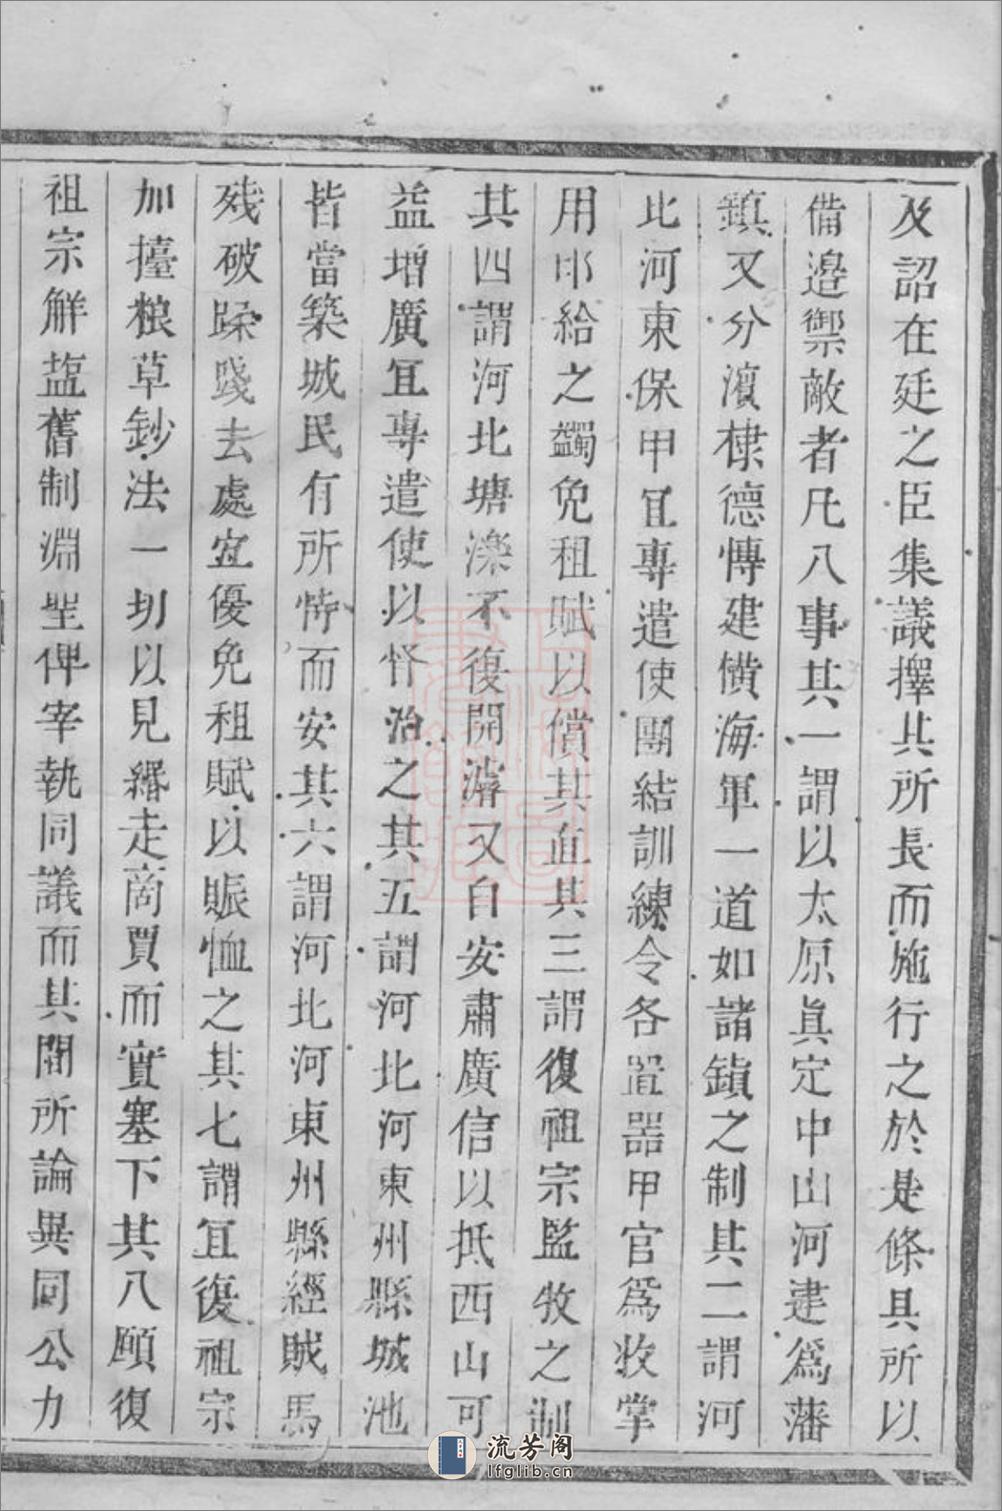 及詔在廷之臣集議擇其所長而施行之於是條具所以
備邉禦敵者凡八事其一謂以太原眞定中山河建爲藩
鎮又分濵棣德慱建横海軍一道如諸鎮之制其二謂河
北河東保甲宜專遣使團結訓練令各置器甲官爲收掌
用印給之蠲免租賦以償其直其三謂復祖宗監牧之制
其四謂河北塘濼不復開濬又自安肅廣信以抵西山可
益增廣宜專遣使以督治之其五謂河北河東州縣城池
皆當築城民有所恃而安其六謂河北河東州縣經賊馬
残破蹂踐去處宜優免租賦以賑恤之其七謂宜復祖宗
加擡粮草鈔法一切以見緡走啇賈而實塞下其八願復
祖宗觧塩舊制淵聖俾宰執同議而其閒所論異同公力
流芳阁
lfglib.cn